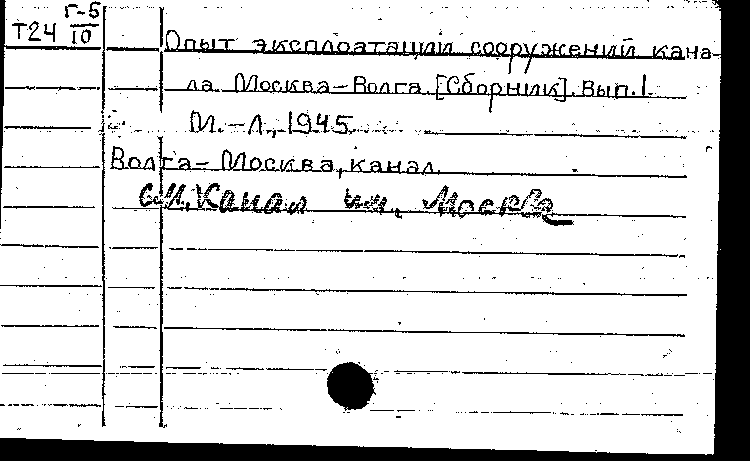 Г-5
Т24 10
Опыт эксплоатации сооружений кана-
ла Москва-Волга [Сборник]. Вып. 1.
М.-Л., 1945
Волга-Москва, канал.
см. Канал им. Москвы